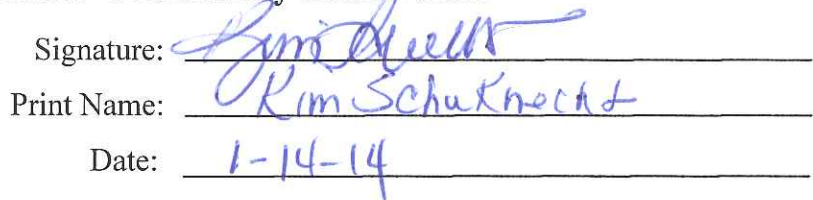 Signature:
Print Name: Kim Schuknecht
Date: 1-14-14